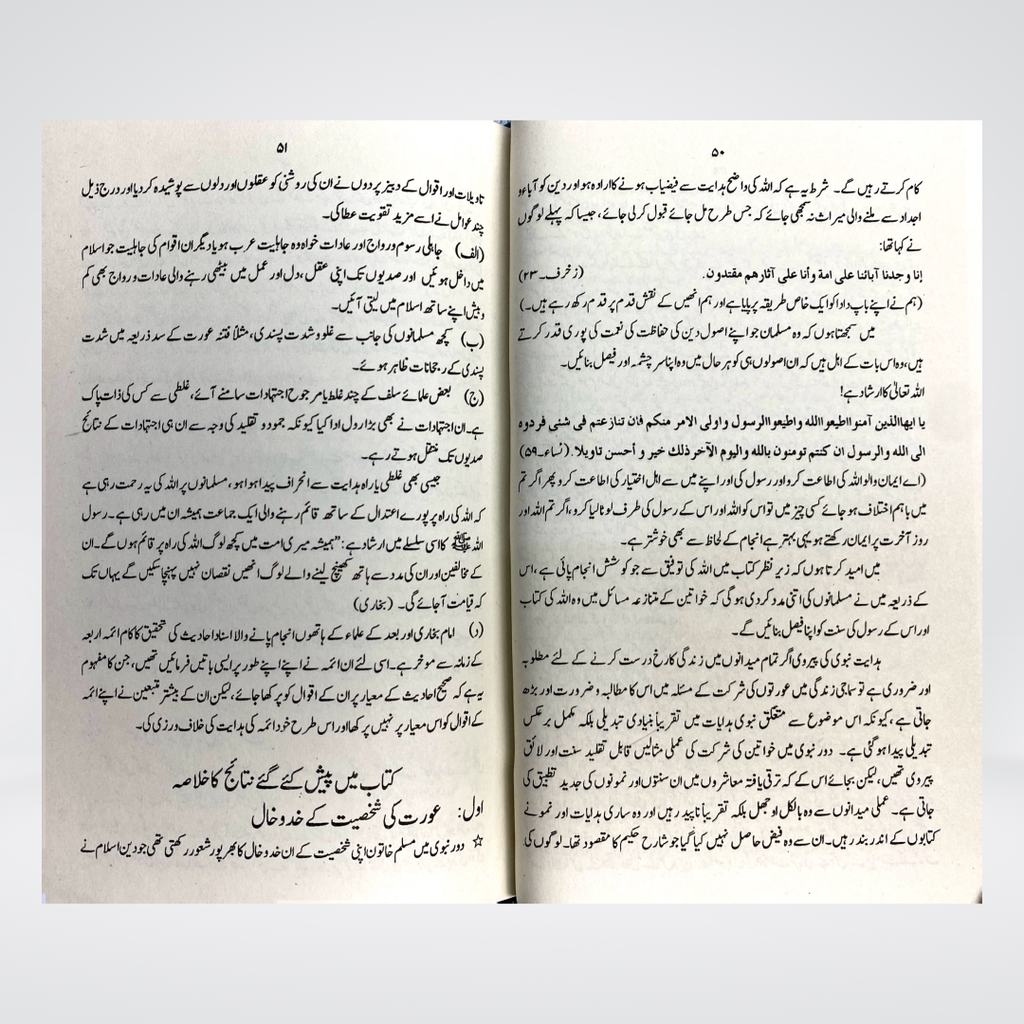 ۵۰
کام کرتے رہیں گے۔ شرط یہ ہے کہ اللہ کی واضح ہدایت سے فیضیاب ہونے کا ارادہ ہو اور دین کو آباء و
اجداد سے ملنے والی میراث نہ سمجھی جائے کہ جس طرح مل جائے قبول کر لی جائے، جیسا کہ پہلے لوگوں
نے کہا تھا:
إنا وجدنا آبائنا على امة وأنا على آثارهم مقتدون. (زخرف۔۲۳)
(ہم نے اپنے باپ دادا کو ایک خاص طریقہ پر پایا ہے اور ہم انھیں کے نقش قدم پر قدم رکھ رہے ہیں۔)
میں سمجھتا ہوں کہ وہ مسلمان جو اپنے اصول دین کی حفاظت کی نعمت کی پوری قدر کرتے
ہیں، وہ اس بات کے اہل ہیں کہ ان اصولوں ہی کو ہر حال میں وہ اپنا سرچشمہ اور فیصل بنائیں۔
اللہ تعالیٰ کا ارشاد ہے!
يا ايها الذين آمنوا اطيعوا الله واطيعوا الرسول واولى الامر منكم فان تنازعتم فى شئى فردوه
الى الله والرسول ان كنتم تومنون بالله واليوم الآخر ذلك خير و أحسن تاويلا. (نساء۔۵۹)
(اے ایمان والو اللہ کی اطاعت کرو اور رسول کی اور اپنے میں سے اہل اختیار کی اطاعت کرو پھر اگر تم
میں باہم اختلاف ہو جائے کسی چیز میں تو اس کو اللہ اور اس کے رسول کی طرف لوٹا لیا کرو، اگر تم اللہ اور
روز آخرت پر ایمان رکھتے ہو یہی بہتر ہے انجام کے لحاظ سے بھی خوشتر ہے۔
میں امید کرتا ہوں کہ زیر نظر کتاب میں اللہ کی توفیق سے جو کوشش انجام پائی ہے، اس
کے ذریعہ میں نے مسلمانوں کی اتنی مدد کر دی ہو گی کہ خواتین کے متنازعہ مسائل میں وہ اللہ کی کتاب
اور اس کے رسول کی سنت کو اپنا فیصل بنائیں گے۔
ہدایت نبوی کی پیروی اگر تمام میدانوں میں زندگی کا رخ درست کرنے کے لئے مطلوبہ
اور ضروری ہے تو سماجی زندگی میں عورتوں کی شرکت کے مسئلہ میں اس کا مطالبہ و ضرورت اور بڑھ
جاتی ہے، کیونکہ اس موضوع سے متعلق نبوی ہدایات میں تقریباً بنیادی تبدیلی بلکہ مکمل برعکس
تبدیلی پیدا ہو گئی ہے۔ دور نبوی میں خواتین کی شرکت کی عملی مثالیں قابل تقلید سنت اور لائق
پیروی تھیں، لیکن بجائے اس کے کہ ترقی یافتہ معاشروں میں ان سنتوں اور نمونوں کی جدید تطبیق کی
جاتی ہے۔ عملی میدانوں سے وہ بالکل اوجھل بلکہ تقریباً ناپید رہیں اور وہ ساری ہدایات اور نمونے
کتابوں کے اندر بند رہیں۔ ان سے وہ فیض حاصل نہیں کیا گیا جو شارح حکیم کا مقصود تھا۔ لوگوں کی
۵۱
تاویلات اور اقوال کے دبیز پردوں نے ان کی روشنی کو عقلوں اور دلوں سے پوشیدہ کر دیا اور درج ذیل
چند عوامل نے اسے مزید تقویت عطا کی۔
(الف) جاہلی رسوم و رواج اور عادات خواہ وہ جاہلیت عرب ہو یا دیگر ان اقوام کی جاہلیت جو اسلام
میں داخل ہوئیں اور صدیوں تک اپنی عقل، دل اور عمل میں بیٹھی رہنے والی عادات و رواج بھی کم
و بیش اپنے ساتھ اسلام میں لیتی آئیں۔
(ب) کچھ مسلمانوں کی جانب سے غلو و شدت پسندی، مثلاً فتنہ عورت کے سد ذریعہ میں شدت
پسندی کے رجحانات ظاہر ہوئے۔
(ج) بعض علمائے سلف کے چند غلط یا مرجوح اجتہادات سامنے آئے، غلطی سے کس کی ذات پاک
ہے۔ ان اجتہادات نے بھی بڑا رول ادا کیا کیونکہ جمود و تقلید کی وجہ سے ان ہی اجتہادات کے نتائج
صدیوں تک منتقل ہوتے رہے۔
جیسی بھی غلطی یا راہ ہدایت سے انحراف پیدا ہوا ہو، مسلمانوں پر اللہ کی یہ رحمت رہی ہے
کہ اللہ کی راہ پر پورے اعتدال کے ساتھ قائم رہنے والی ایک جماعت ہمیشہ ان میں رہی ہے۔ رسول
اللہ ﷺ کا اسی سلسلے میں ارشاد ہے: "ہمیشہ میری امت میں کچھ لوگ اللہ کی راہ پر قائم ہوں گے۔ ان
کے مخالفین اور ان کی مدد سے ہاتھ کھینچ لینے والے لوگ انھیں نقصان نہیں پہنچا سکیں گے یہاں تک
کہ قیامت آ جائے گی۔ (بخاری)
(د) امام بخاری اور بعد کے علماء کے ہاتھوں انجام پانے والا اسناد احادیث کی تحقیق کا کام ائمہ اربعہ
کے زمانہ سے موخر ہے۔ اسی لئے ان ائمہ نے اپنے اپنے طور پر ایسی باتیں فرمائیں تھیں، جن کا مفہوم
یہ ہے کہ صحیح احادیث کے معیار پر ان کے اقوال کو پرکھا جائے، لیکن ان کے بیشتر متبعین نے اپنے ائمہ
کے اقوال کو اس معیار پر نہیں پرکھا اور اس طرح خود ائمہ کی ہدایت کی خلاف ورزی کی۔
کتاب میں پیش کئے گئے نتائج کا خلاصہ
اول: عورت کی شخصیت کے خدوخال
☆ دور نبوی میں مسلم خاتون اپنی شخصیت کے ان خدوخال کا بھرپور شعور رکھتی تھی جو دین اسلام نے